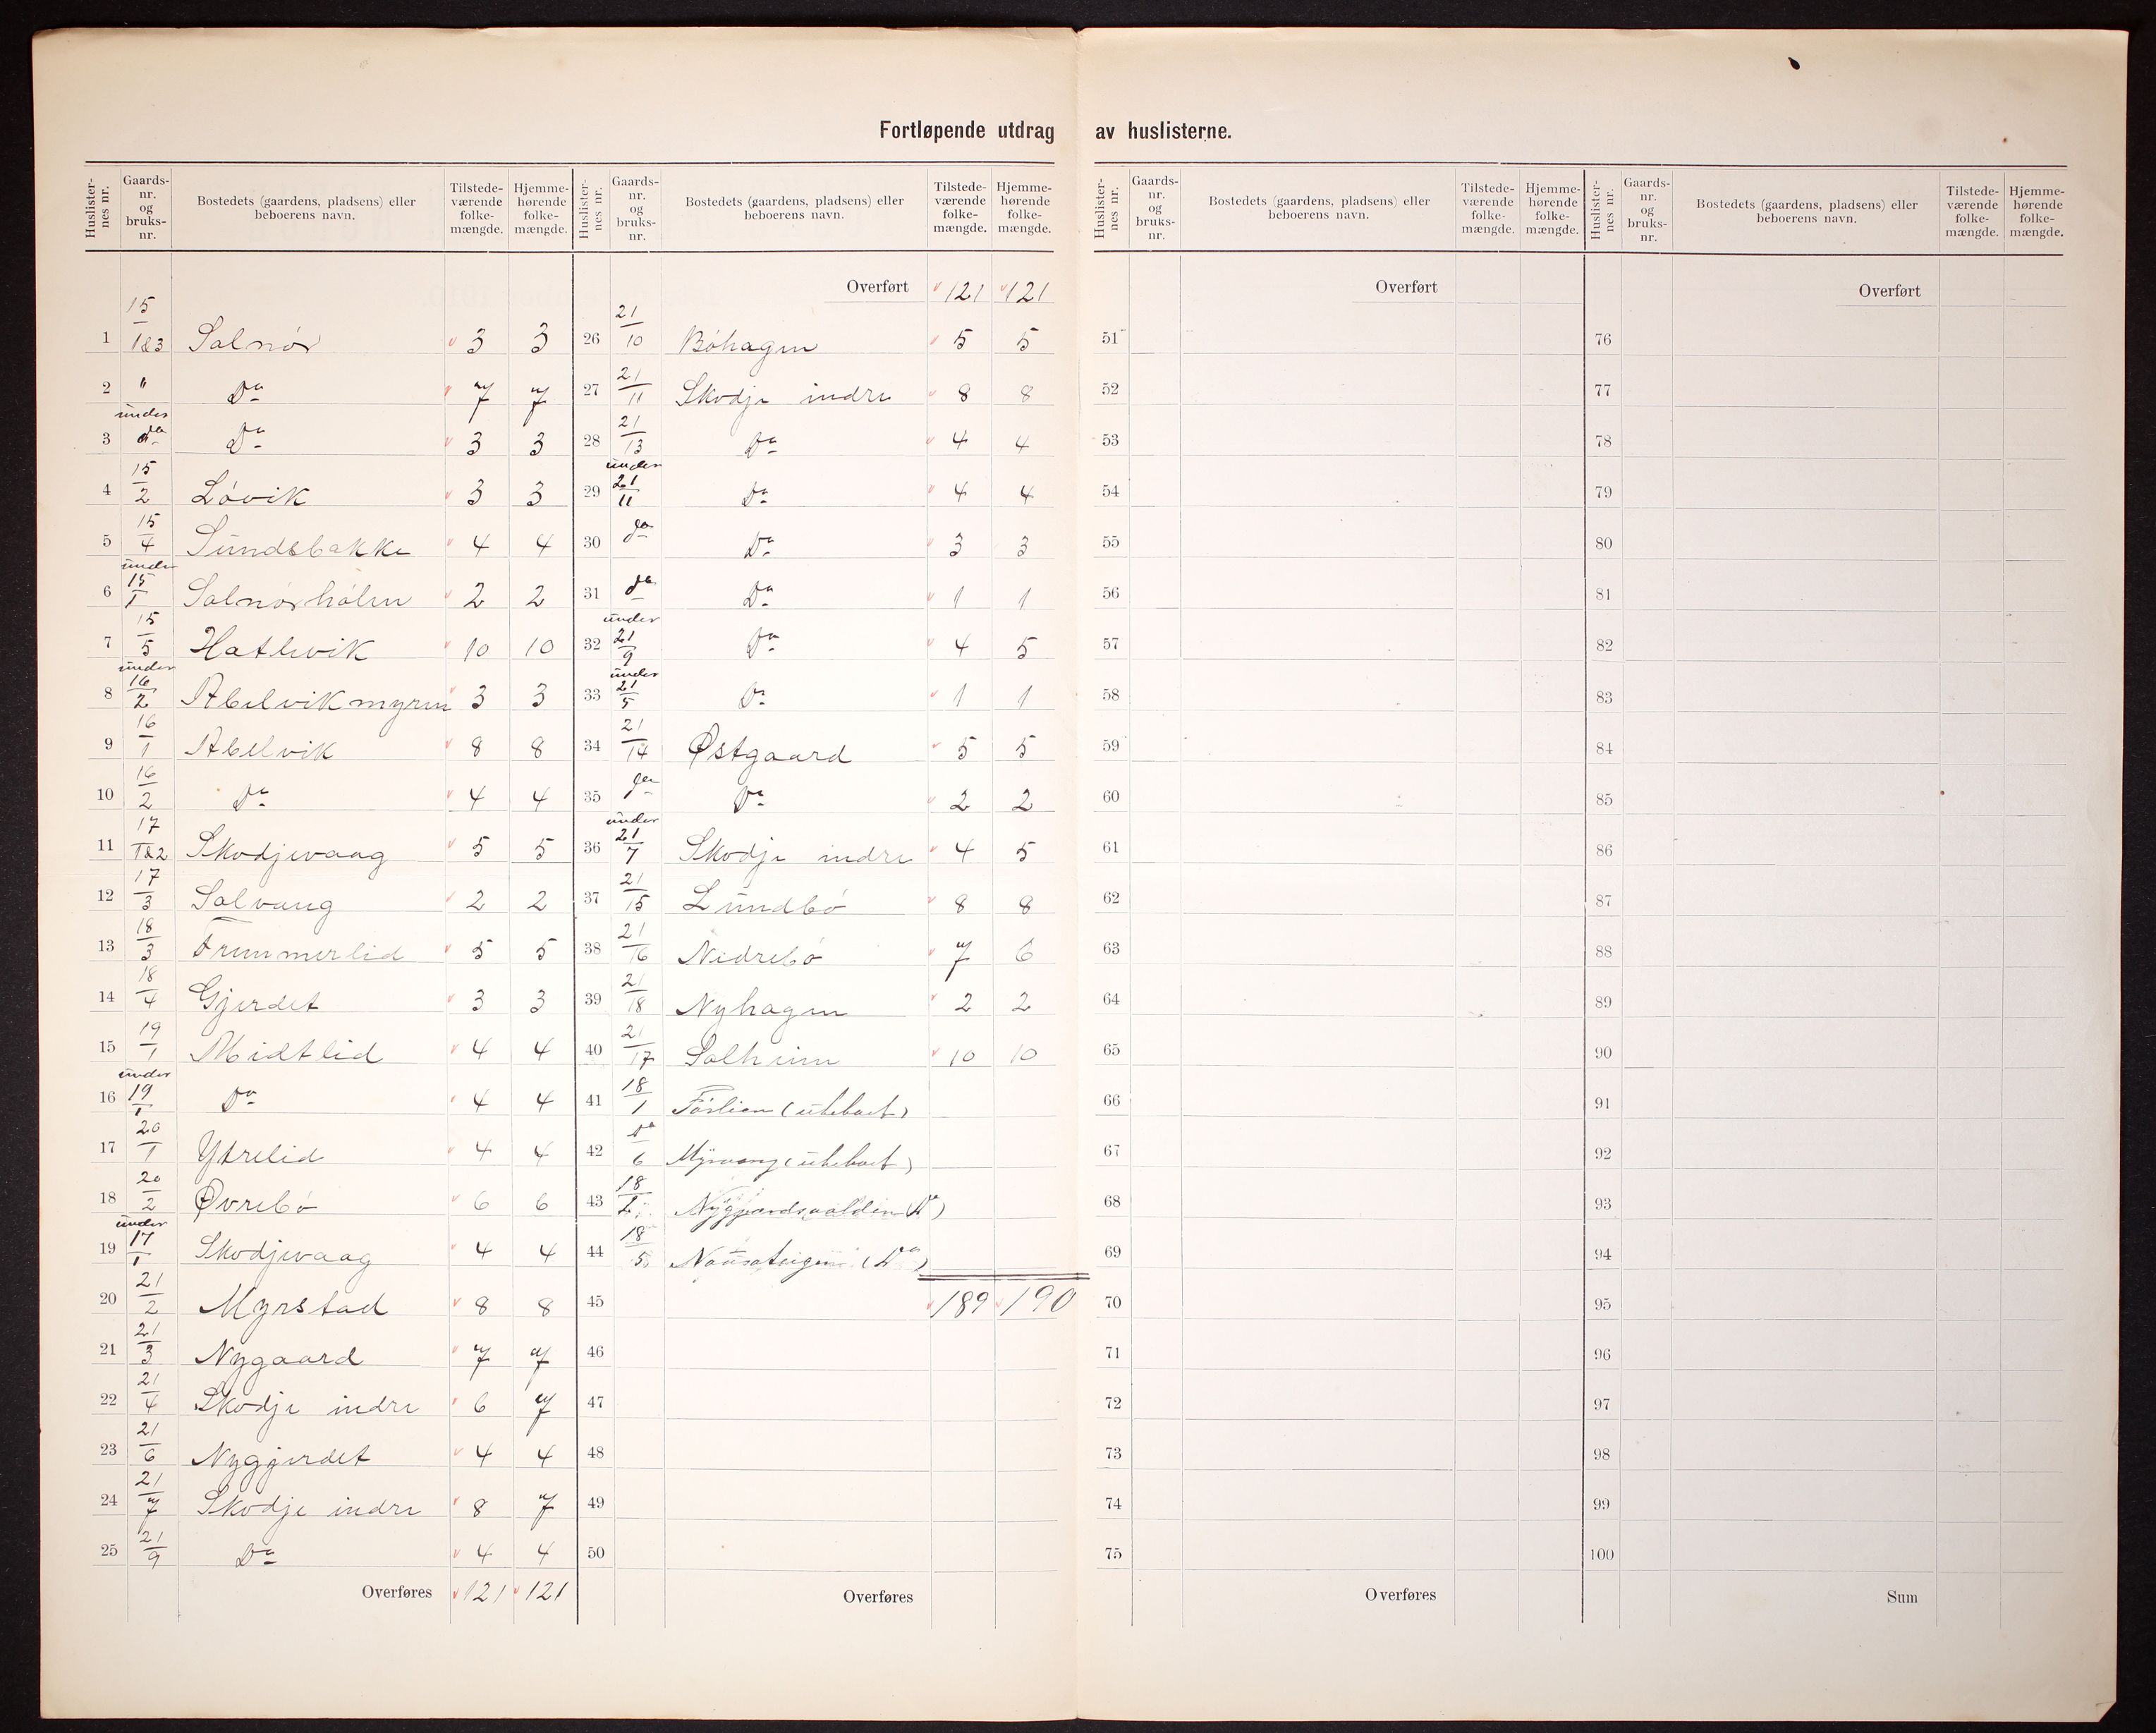 Fortløpende utdrag av huslisterne.
Huslisternes nr. Gaardsnr. og bruksnr. Bostedets (gaardens, pladsens) eller beboerens navn. Tilstedeværende folkemængde. Hjemmehørende folkemængde.
1 15/1&3 Solnør 3 3
2 " Do 7 7
3 under do Do 3 3
4 15/2 Lövik 3 3
5 15/4 Sundsbakke 4 4
6 under 15/1 Solnørholm 2 2
7 15/5 Hatlevik 10 10
8 under 16/2 Abelvikmyren 3 3
9 16/1 Abelvik 8 8
10 16/2 Do 4 4
11 17/1&2 Skodjevaag 5 5
12 17/3 Solvang 2 2
13 18/3 Frummerlid 5 5
14 18/4 Gjerdet 3 3
15 19/1 Midtlid 4 4
16 under 19/1 Do 4 4
17 20/1 Ytrelid 4 4
18 20/2 Øvrebö 6 6
19 under 17/1 Skodjevaag 4 4
20 21/2 Myrstad 8 8
21 21/3 Nygaard 7 7
22 21/4 Skodje indre 6 7
23 21/6 Nyggjerdet 4 4
24 21/7 Skodje indre 8 7
25 21/9 Do 4 4
Overføres 121 121
Huslisternes nr. Gaardsnr. og bruksnr. Bostedets (gaardens, pladsens) eller beboerens navn. Tilstedeværende folkemængde. Hjemmehørende folkemængde.
Overført 121 121
26 21/10 Böhagen 5 5
27 21/11 Skodje indre 8 8
28 21/13 Do 4 4
29 under 21/11 Do 4 4
30 do Do 3 3
31 do Do 1 1
32 under 21/9 Do 4 5
33 under 21/5 Do 1 1
34 21/14 Østgaard 5 5
35 do Do 2 2
36 under 21/7 Skodje indre 4 5
37 21/15 Lundbö 8 8
38 21/16 Nedrebö 7 6
39 21/18 Nyhagen 2 2
40 21/17 Solheim 10 10
41 18/1 Förlien (ubeboet)
42 do/6 Myrvang (ubeboet)
43 18/ (Do)
44 18/5 (Do)
45 189 190
46
47
48
49
50
Overføres
Huslisternes nr. Gaardsnr. og bruksnr. Bostedets (gaardens, pladsens) eller beboerens navn. Tilstedeværende folkemængde. Hjemmehørende folkemængde.
Overført
51
52
53
54
55
56
57
58
59
60
61
62
63
64
65
66
67
68
69
70
71
72
73
74
75
Overføres
Huslisternes nr. Gaardsnr. og bruksnr. Bostedets (gaardens, pladsens) eller beboerens navn. Tilstedeværende folkemængde. Hjemmehørende folkemængde.
Overført
76
77
78
79
80
81
82
83
84
85
86
87
88
89
90
91
92
93
94
95
96
97
98
99
100
Sum